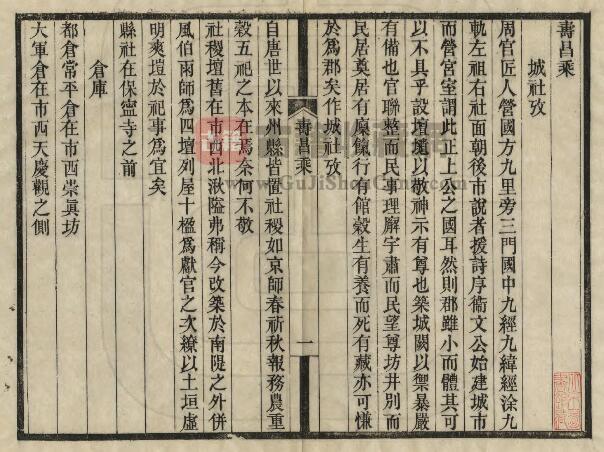 壽昌乘
城社攷
周官匠人營國方九里旁三門國中九經九緯經涂九
軌左祖右社面朝後市說者援詩序衞文公始建城市
而營宮室謂此正上公之國耳然則郡雖小而體其可
以不具乎設壇壝以敬神示有尊也築城闕以禦暴嚴
有備也官聯整而民事理廨宇肅而民望尊坊井別而
民居奠居有廩餼行有館穀生有養而死有藏亦可慊
於爲郡矣作城社攷
壽昌乘
一
自唐世以來州縣皆置社稷如京師春祈秋報務農重
穀五祀之本在焉奈何不敬
社稷壇舊在市西北湫隘弗稱今改築於南隄之外併
風伯雨師爲四壇列屋十楹爲獻官之次繚以土垣虛
明爽塏於祀事爲宜矣
縣社在保寧寺之前
倉庫
都倉常平倉在市西崇眞坊
大軍倉在市西天慶觀之側
www.GuJiShuGuan.com